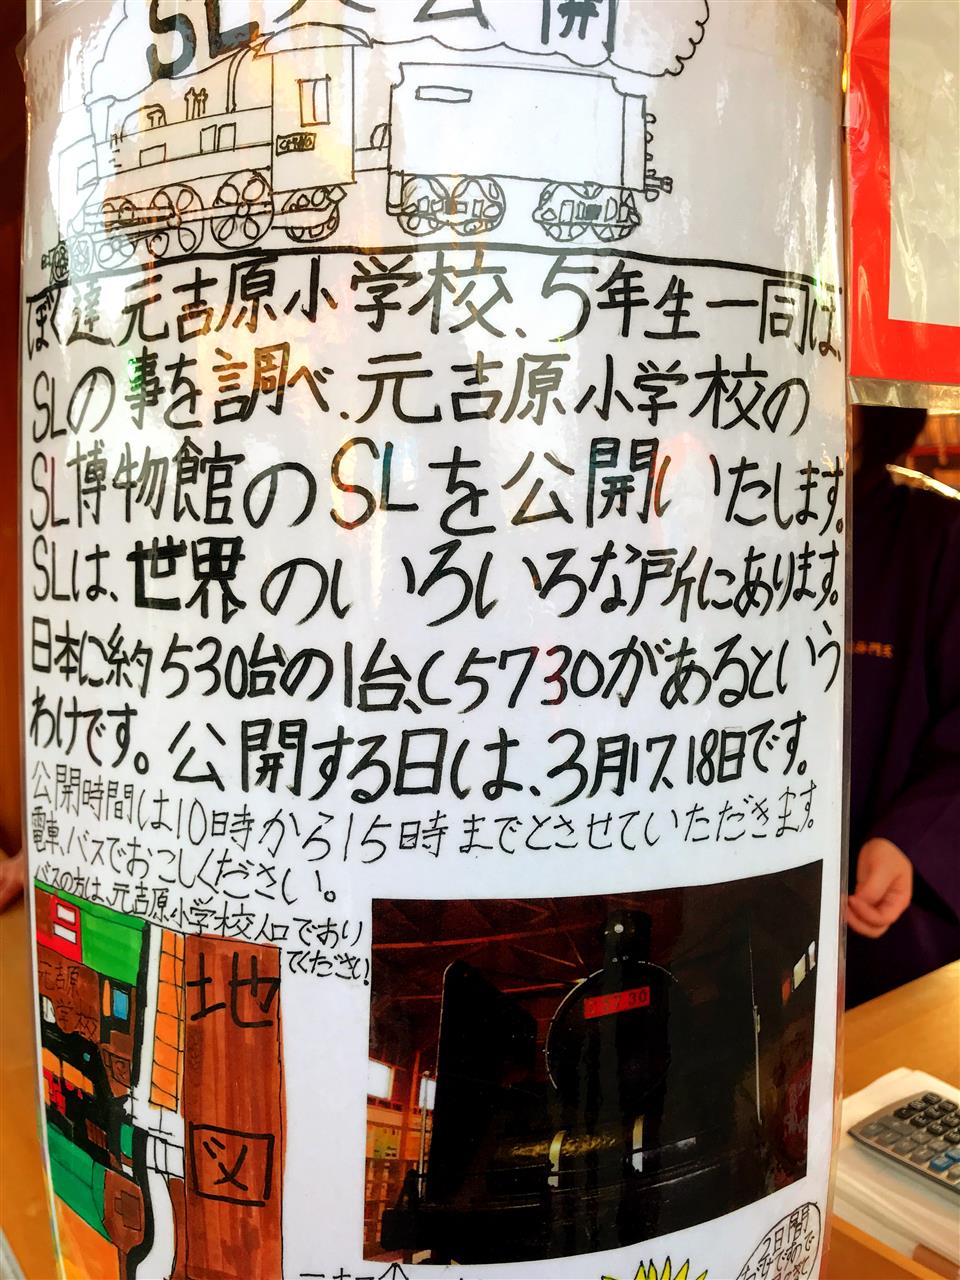 SL大公開
ぼく達元吉原小学校、5年生一同ぼ、
SLの事を調べ、元吉原小学校の
SL博物館のSLを公開いたします。
SLは、世界のいろいろな所にあります。
日本に約530台の1台、C5730があるという
わけです。公開する日は、3月17、18日です。
公開時間は10時から15時までとさせていただきます。
電車、バスでおこしください。
バスの方は、元吉原小学校入口でおり
てください!
元吉原
小学校
地図
C5730
2日間